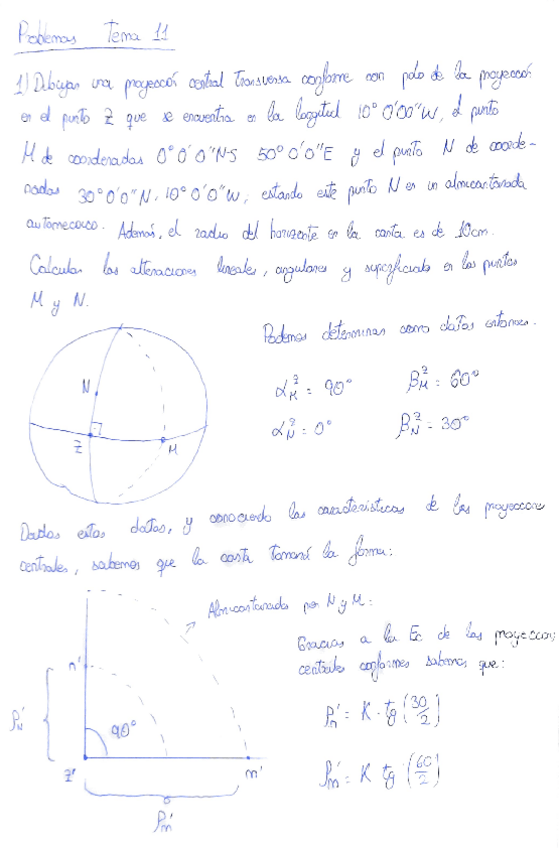 Problemas Tema 11
1) Dibujar una proyección central transversa conforme con polo de la proyección
en el punto Z que se encuentra en la longitud 10° 0'00"W, el punto
M de coordenadas 0°0'0"N-S 50°0'0"E y el punto N de coorde-
nadas 30°0'0"N, 10°0'0"W, estando este punto N en un almucantarada
automecoico. Además, el radio del horizonte en la carta es de 10cm.
Calcular las alteraciones lineales, angulares y superficiales en los puntos
M y N.
Podemos determinar como datos entonces.
α_M^Z = 90° β_M^Z = 60°
α_N^Z = 0° β_N^Z = 30°
N
Z
M
Dados estos datos, y conociendo las características de las proyecciones
centrales, sabemos que la carta tomará la forma:
Almucantaradas por N y M:
Gracias a la Ec de las proyeccions
centrales conformes sabemos que:
n'
ρ_N'
90°
ρ_n' = K · tg (30/2)
ρ_m' = K tg (60/2)
z'
m'
ρ_m'